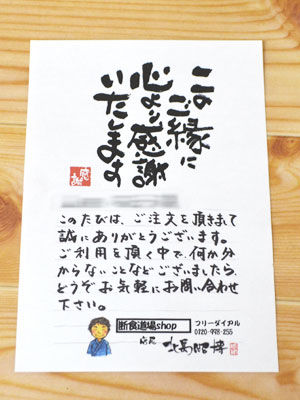 この
ご縁に
心より感謝
いたします
感謝
このたびは、ご注文を頂きまして
誠にありがとうございます。
ご利用を頂く中で、何か分
からないことなどございましたら、
どうぞお気軽にお問い合わせ
下さい。
断食道場shop
フリーダイヤル
0120-998-255
店長